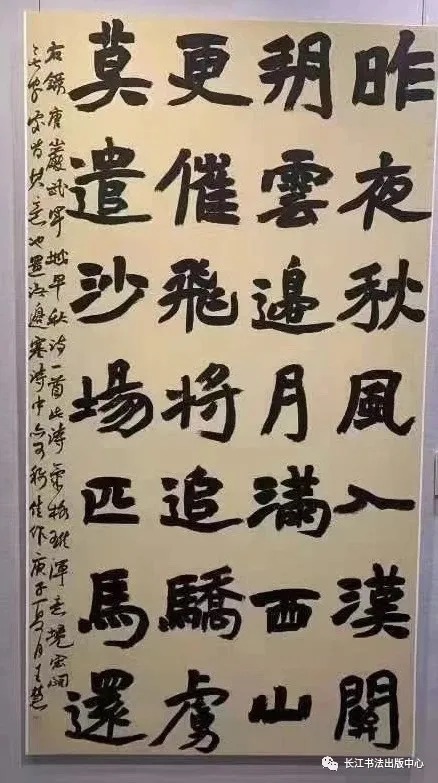 昨夜秋風入漢關
朔雲邊月滿西山
更催飛將追驕虜
莫遣沙場匹馬還
右錄唐嚴武軍城早秋詩一首此詩氣格雄渾意境宏闊
也置邊塞詩中亦可稱佳作庚子夏月王慧
长江书法出版中心